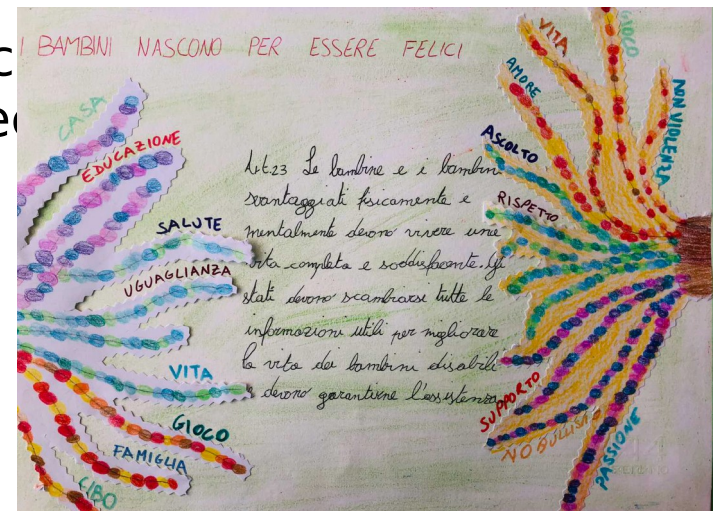 I BAMBINI NASCONO PER ESSERE FELICI
CASA
EDUCAZIONE
SALUTE
UGUAGLIANZA
VITA
GIOCO
FAMIGLIA
CIBO
Art.23 Le bambine e i bambini
svantaggiati fisicamente e
mentalmente devono vivere una
vita completa e soddisfacente. Gli
stati devono scambiarsi tutte le
informazioni utili per migliorare
la vita dei bambini disabili
e devono garantirne l'assistenza
VITA
GIOCO
AMORE
NON VIOLENZA
ASCOLTO
RISPETTO
SUPPORTO
NO BULLISMO
PASSIONE